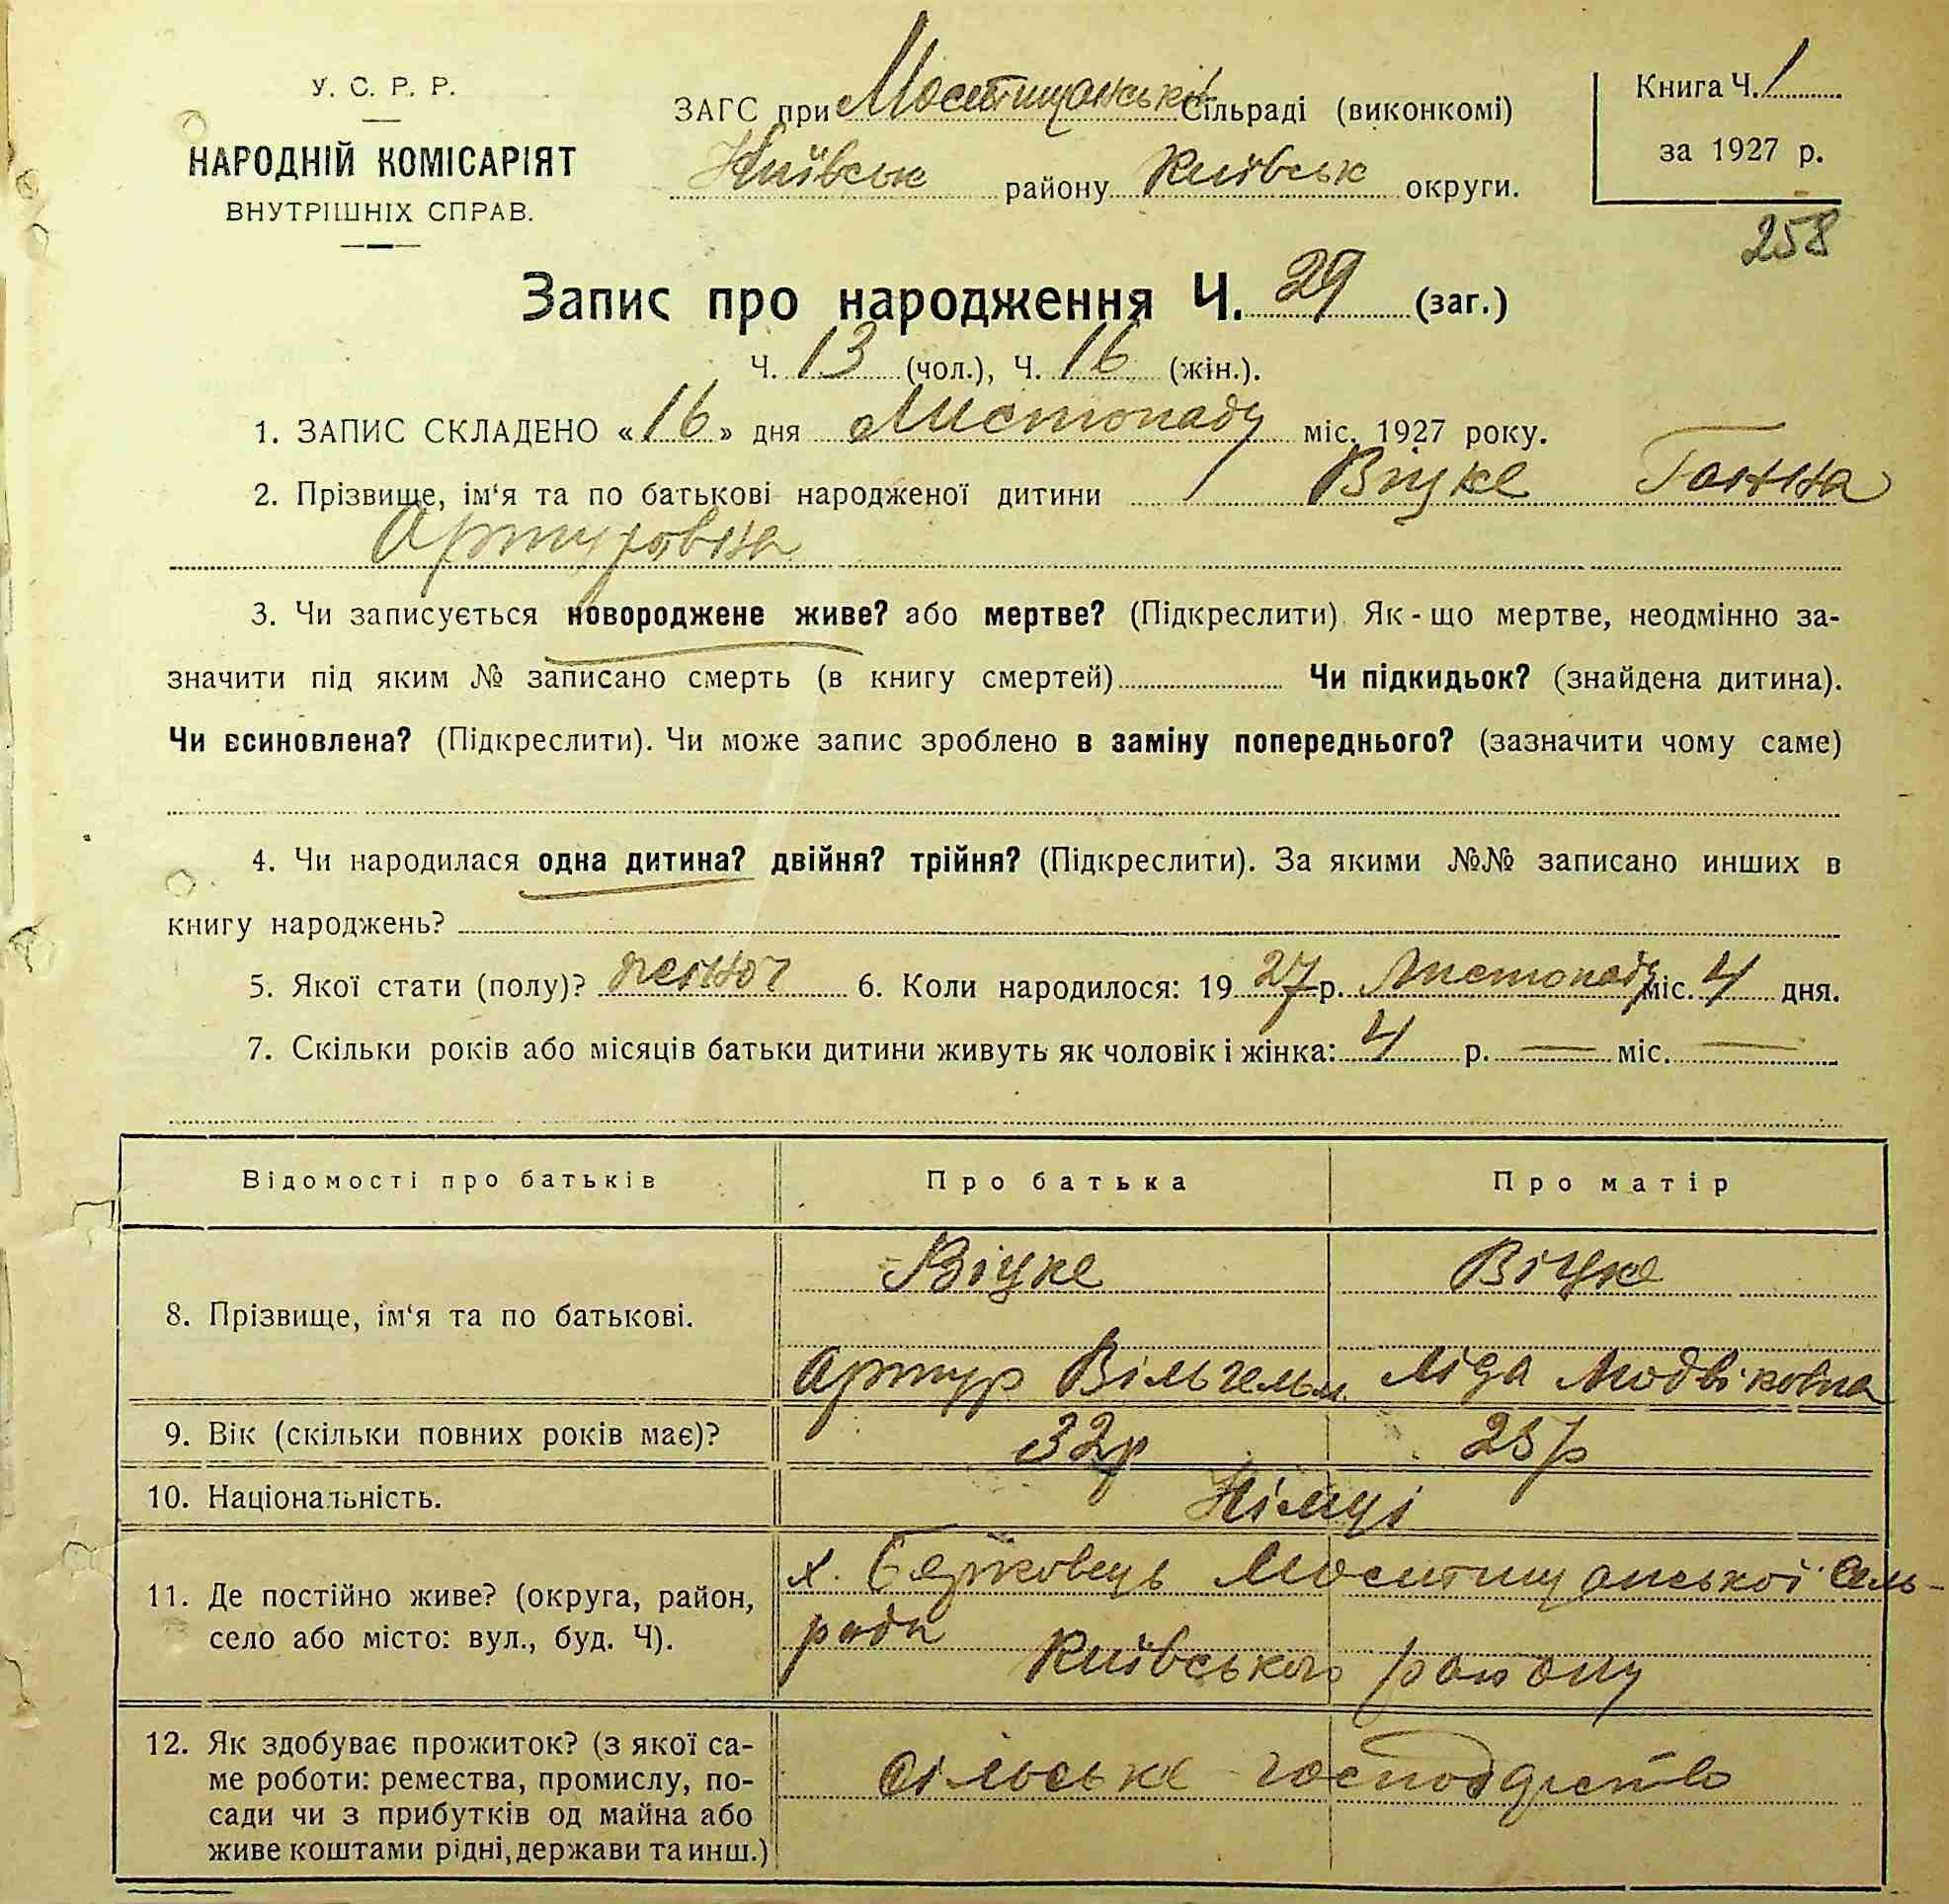 У. С. Р. Р.
НАРОДНІЙ КОМІСАРІЯТ
ВНУТРІШНІХ СПРАВ.
ЗАГС при Мостищанській Сільраді (виконкомі)
Київськ району Київськ округи.
Книга Ч. 1
за 1927 р.
258
Запис про народження Ч. 29 (заг.)
Ч. 13 (чол.), Ч. 16 (жін.).
1. ЗАПИС СКЛАДЕНО « 16 » дня Листопаду міс. 1927 року.
2. Прізвище, ім‘я та по батькові народженої дитини Віцке Ганна
Артуровна
3. Чи записується новороджене живе? або мертве? (Підкреслити). Як-що мертве, неодмінно за-
значити під яким № записано смерть (в книгу смертей) Чи підкидьок? (знайдена дитина).
Чи всиновлена? (Підкреслити). Чи може запис зроблено в заміну попереднього? (зазначити чому саме)
4. Чи народилася одна дитина? двійня? трійня? (Підкреслити). За якими №№ записано инших в
книгу народжень?
5. Якої стати (полу)? 6. Коли народилося: 19 27 р. Листопаду міс. 4 дня.
7. Скільки років або місяців батьки дитини живуть як чоловік і жінка: 4 р. — міс. —
Відомості про батьків Про батька Про матір
8. Прізвище, ім‘я та по батькові. Віцке Віцке
Артур Вільгельм Ліда Людвіковна
9. Вік (скільки повних років має)? 32р 25р
10. Національність. Німці
11. Де постійно живе? (округа, район,
село або місто: вул., буд. Ч).
х. Берковець Мостищанської Сель-
ради
Київського району
12. Як здобуває прожиток? (з якої са-
ме роботи: ремества, промислу, по-
сади чи з прибутків од майна або
живе коштами рідні, держави та инш.)
сільське господарство